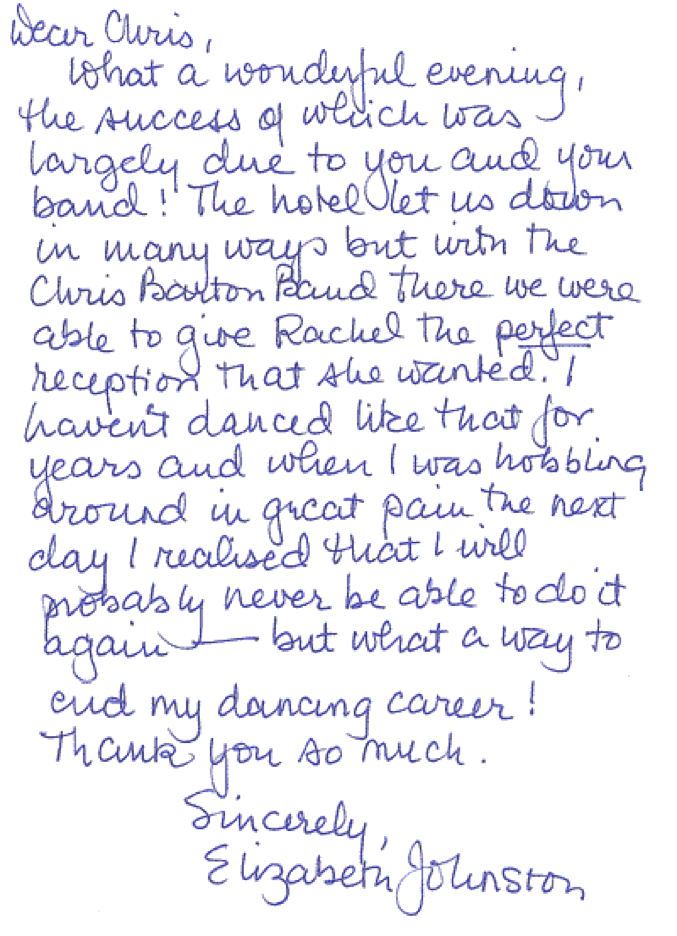 Dear Chris,
What a wonderful evening,
the success of which was
largely due to you and your
band! The hotel let us down
in many ways but with the
Chris Barton Band there we were
able to give Rachel the perfect
reception that she wanted. I
haven't danced like that for
years and when I was hobbling
around in great pain the next
day I realised that I will
probably never be able to do it
again — but what a way to
end my dancing career!
Thank you so much.
Sincerely,
Elizabeth Johnston